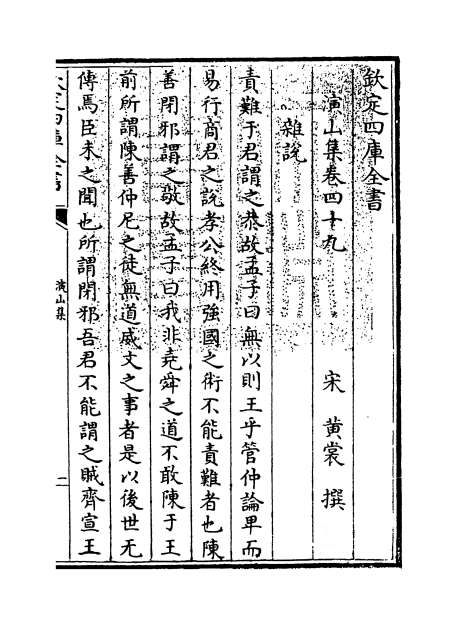 欽定四庫全書
演山集卷四十九
宋 黄裳 撰
雜說
責難于君謂之恭故孟子曰無以則王乎管仲論卑而
易行商君之說孝公終用強國之術不能責難者也陳
善閉邪謂之敬故孟子曰我非堯舜之道不敢陳于王
前所謂陳善仲尼之徒無道威文之事者是以後世无
傳焉臣未之聞也所謂閉邪吾君不能謂之賊齊宣王
欽定四庫全書
演山集